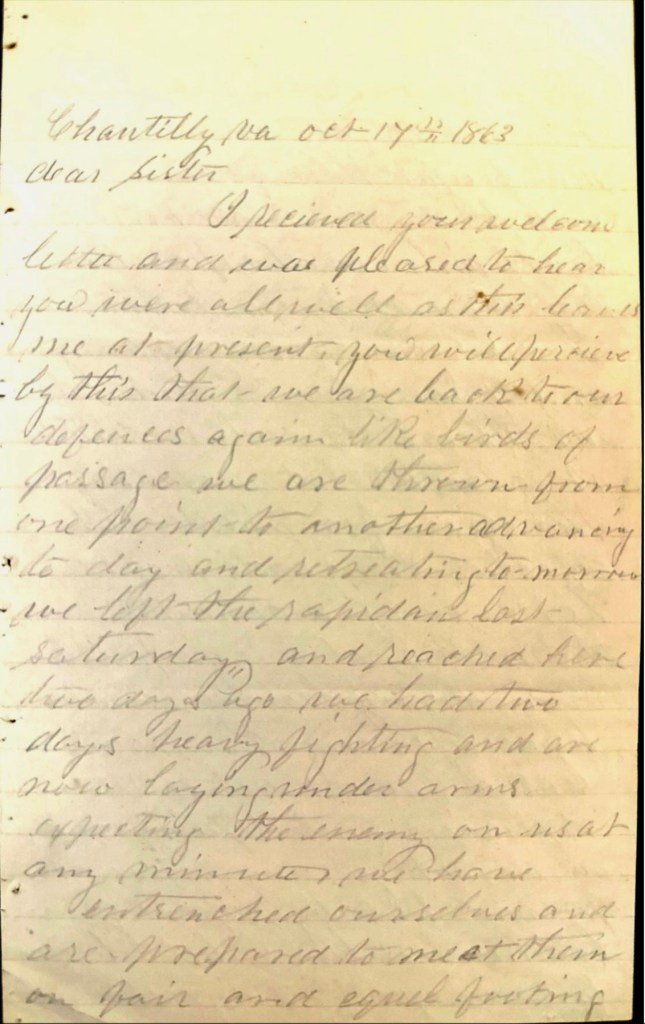 Chantilly va oct 17th 1863
dear sister
I recieved your welcom
letter and was pleased to hear
you were all well as this leaves
me at present, you will percieve
by this that we are back to our
defences again like birds of
passage we are thrown from
one point to another advancing
to day and retreating to-morrow
we left the rapidan last
saturday and reached here
two days ago we had two
days heavy fighting and are
now laying under arms
expecting the enemy on us at
any minute we have
entrenched ourselves and
are prepared to meet them
on fair and equel footing